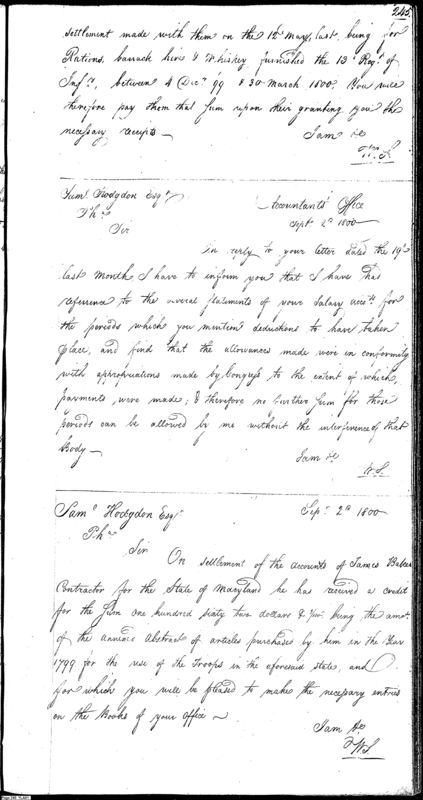 245.
settlement made with them on the 12th May, last, being for
Rations, barrack hire & Whiskey furnished the 13th Regt. of
Infy., between 4 Decr. 99 & 30 March 1800. You will
therefore pay them that sum upon their granting you the
necessary receipts —
I am &c
W. S.
Saml. Hodgdon Esqr.
Pha.
Accountants Office
Sept. 2d 1800 —
Sir
In reply to your letter dated the 19th
last month, I have to inform you that I have had
referrence to the several statements of your Salary accts. for
the periods which you mention deductions to have taken
place, and find that the allowances made were in conformity
with appropriations made by Congress to the extent of which,
payments were made; & therefore no further sum for those
periods can be allowed by me without the interference of that
Body —
I am &c
W. S.
Saml. Hodgdon Esqr.
Sepr. 2d 1800
Pha.
Sir
On settlement of the accounts of James
Contractor for the State of Maryland he has received a credit
for the sum one hundred sixty two dollars & being the amot.
of the annexed Abstract of articles purchased by him in the Year
1799 for the use of the Troops in the aforesaid state, and
for which you will be pleased to make the necessary entries
on the Books of your office —
I am &c
W. S.